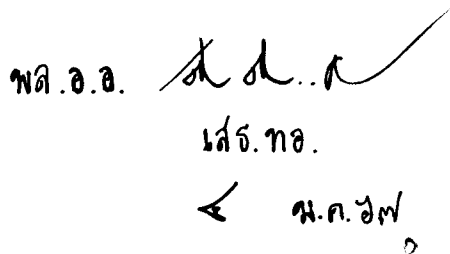 พล.อ.อ.
เสธ.ทอ.
๔ ม.ค.๖๗